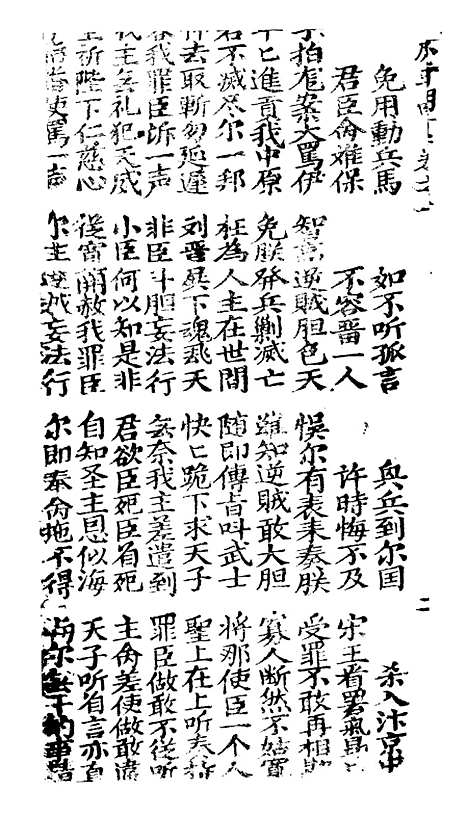 免用動兵馬 如不听孤言 興兵到尔国 杀入汴京中
君臣侖难保 不容畱一人 许時悔不及 宋王看罢氣
手拍龙案大罵伊 智高逆賊胆色天 悞尔有表来奏朕 受罪不敢再相
年匕進貢我中原 免朕発兵剿滅亡 誰知逆賊敢大胆 寡人断然不姑寛
若不滅尽尔一邦 枉為人主在世間 随即傳旨叫武士 將那使臣一个人
去取斬勿延遲 刘晋下魂飛天 快匕跪下求天子 聖上在上听奏称
容我罪臣訴一声 非臣斗胆妄法行 無奈我主差遣到 罪臣做敢不從听
我主無礼犯天威 小臣何以知是非 君欲臣死臣有死 主侖差使做敢違
望祈陛下仁慈心 從宵開赦我罪臣 自知圣主恩似海 天子听有言亦真
使罵一声 尔主妄法行 尔即奉侖拖不得 尔無干的事情
二